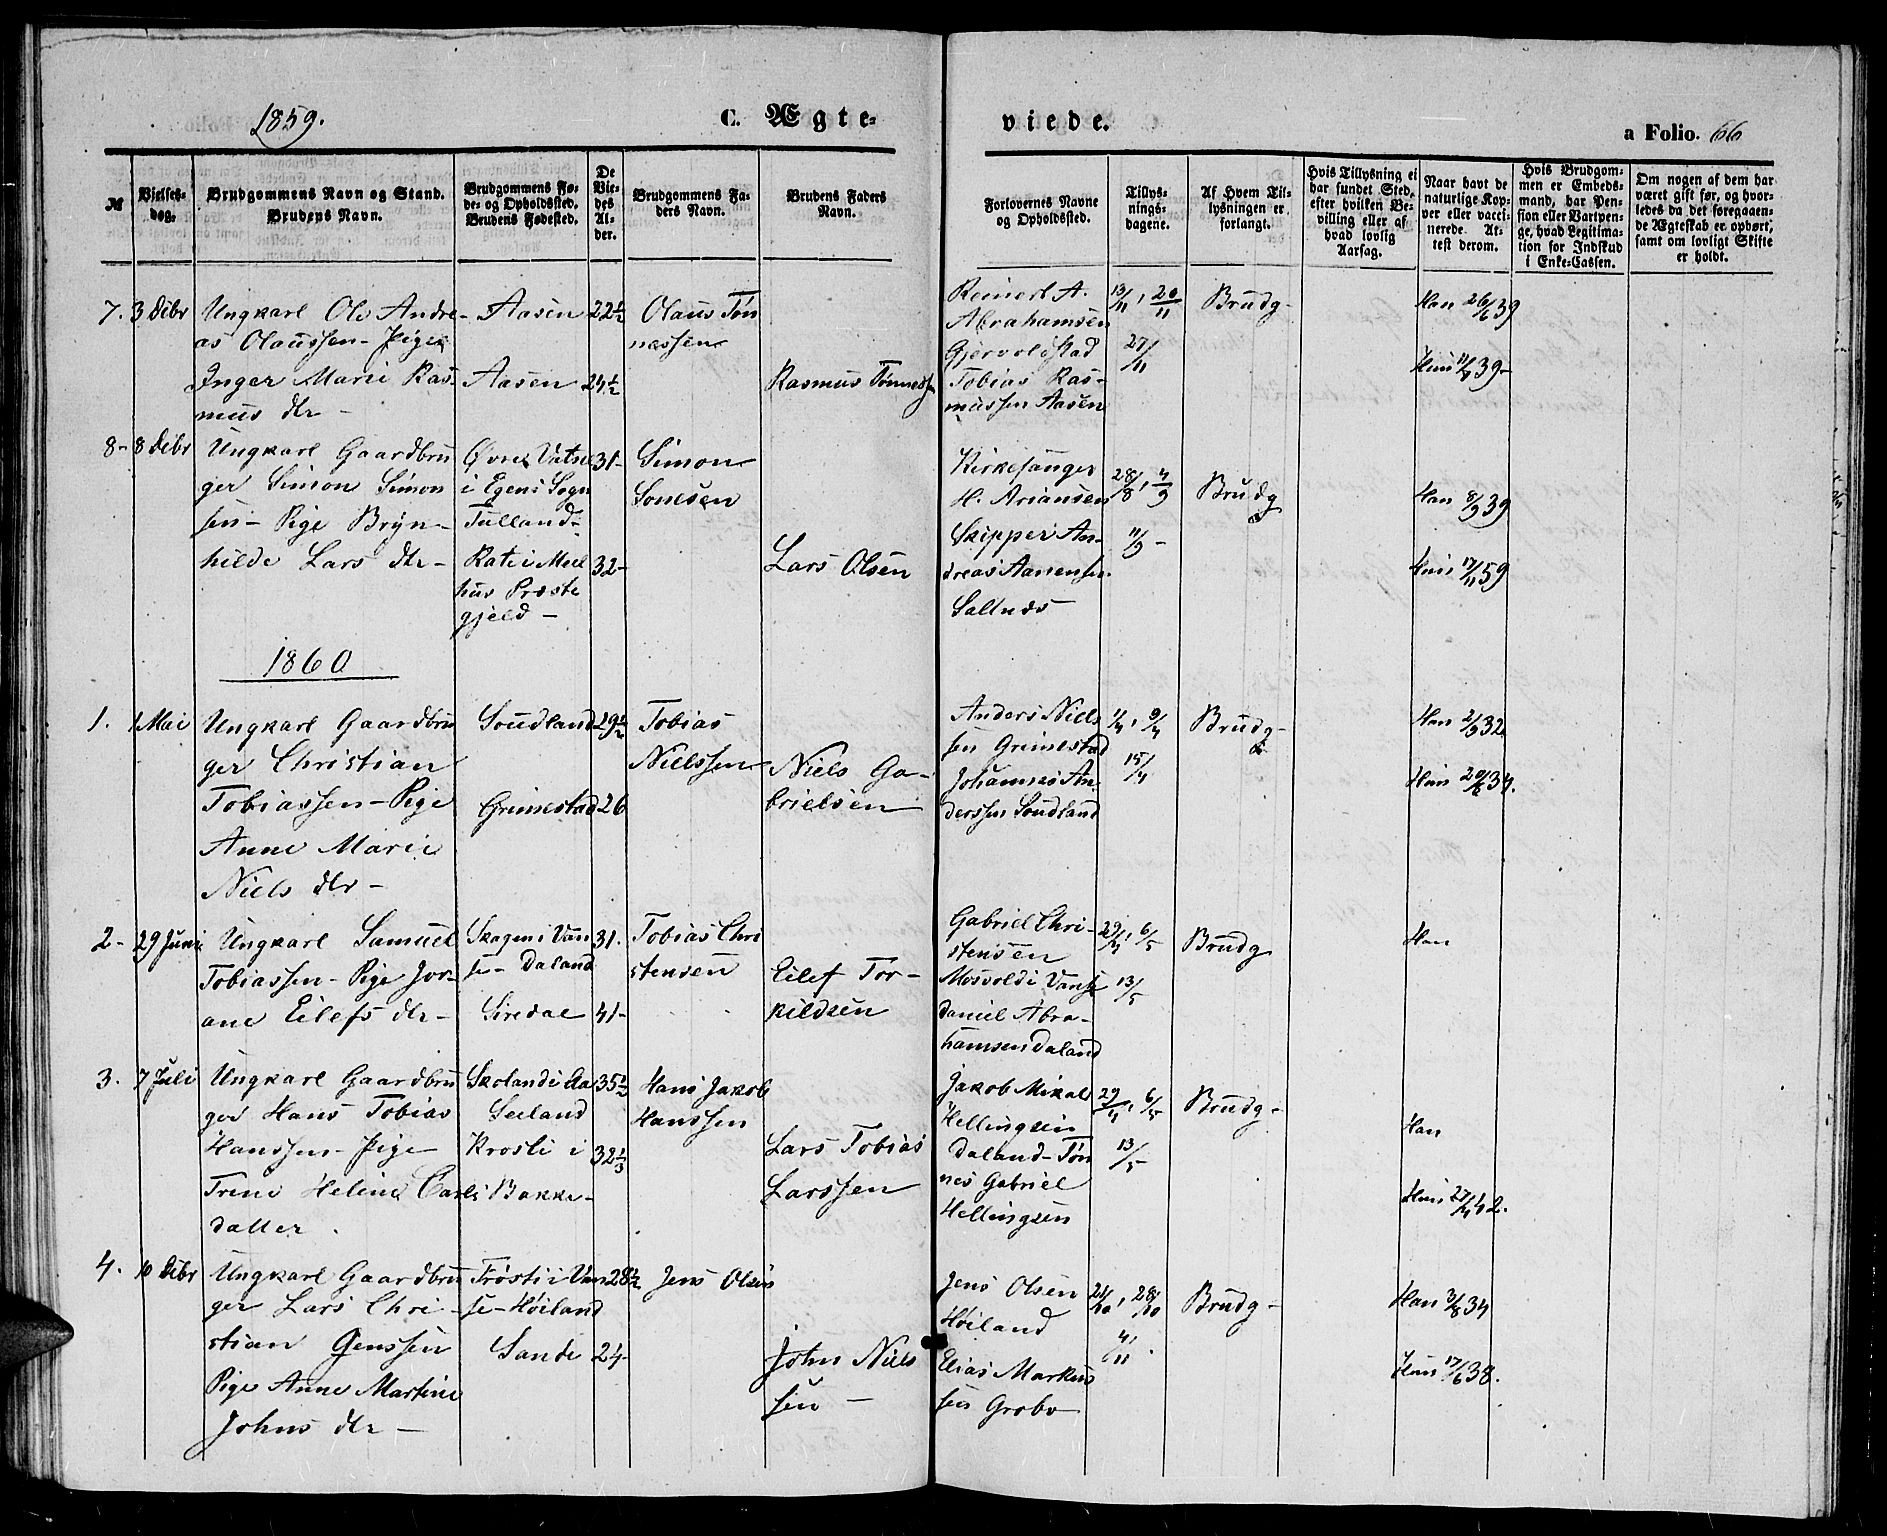 1859.
C. Ægte-
viede.
a Folio. 66
№
Vielses-
dag.
Brudgommens Navn og Stand.
Brudens Navn.
Brudgommens Fø-
de- og Opholdssted.
Brudens Fødested.
De
Vie-
des
Al-
der.
Brudgommens Fa-
ders Navn.
Brudens Faders
Navn.
Forlovernes Navne
og Opholdssted.
Tillys-
nings-
dagene.
Af Hvem Til-
lysningen er
forlangt.
Hvis Tillysning ei
har fundet Sted,
efter hvilken Be-
villing eller af
hvad lovlig
Aarsag.
Naar havt de
naturlige Kop-
per eller vacci-
nerede. At-
test derom.
Hvis Brudgom-
men er Embeds-
mand, har Pen-
sion eller Vartpen-
ge, hvad Legitima-
tion for Indskud
i Enke-Cassen.
Om nogen af dem har
været gift før, og hvor-
ledes da det foregaaen-
de Ægteskab er ophørt,
samt om lovligt Skifte
er holdt.
7. 3 Debr
Ungkarl Ole Andre-
as Olaussen - Pige
Inger Marie Ras-
mus dtr -
Aasen 22½
Aasen 24½
Olaus Tøn
nessen
Rasmus Tønnesen
Reinert A.
Abrahamsen
Gjervoldstad
Tobias Ras-
mussen Aasen
13/11, 20/11
27/11
Brudg-
Han 26/6 39
Hun 11/9 39-
8- 8 Debr
Ungkarl Gaardbru
ger Simon Simon
sen - Pige Bryn-
hilde Lars dtr -
Øvre Vatne
i Egens Sogn
Tulland-
Rate i Mel
hus Præste
gjeld -
31-
32-
Simon
Sonesen
Lars Olsen
Kirkesanger
H. Ariansen
Skipper An-
dreas Aanensen
Saltnes
28/8, 4/9
11/9 -
Brudg
Han 8/9 39
Hun 17/11 59
1860
1. 1 Mai
Ungkarl Gaardbru
ger Christian
Tobiassen - Pige
Anne Marie
Niels dtr -
Soudland 29½
Grimestad 26
Tobias
Nielssen
Niels Ga-
brielsen
Anders Niels
sen Grimestad
Johannes An
derssen Soudland
1/4, 9/4
15/4
Brudg-
Han 2/9 32
Hun 20/6 34.
2- 29 Juni
Ungkarl Samuel
Tobiassen - Pige Jor-
ane Eilefs dtr -
Skagen i Van
se - Daland
Siredal
31.
41-
Tobias Chri
stensen
Eilef Tor-
kildsen
Gabriel Chri-
stensen
Mosvold i Vanse
Daniel Abra-
hamsen Daland
29/4, 6/5
13/5
Brudg
Han
3. 7 Juli
Ungkarl Gaardbru
ger Hans Tobias
Hanssen - Pige
Trine Heline Carls
datter .
Skoland i Aa
Seeland
Krosli i
Bakke-
35½
32⅓
Hans Jakob
Hanssen
Lars Tobias
Larssen
Jakob Mikal
Hellingsen
Daland - Tøn
nes Gabriel
Hellingsen
29/4, 6/5
13/5
Brudg-
Han
Hun 27/9 42.
4. 10 Debr
Ungkarl Gaardbru
ger Lars Chri-
stian Jenssen
Pige Anne Martine
Johns dtr -
Trøsti i Van
se - Høiland
Sande
28½
24-
Jens Olsen
John Niels
sen -
Jens Olsen
Høiland
Elias Markus
sen Grobo
21/10, 28/10
4/11.
Brudg-
Han 3/8 34
Hun 17/6 38.